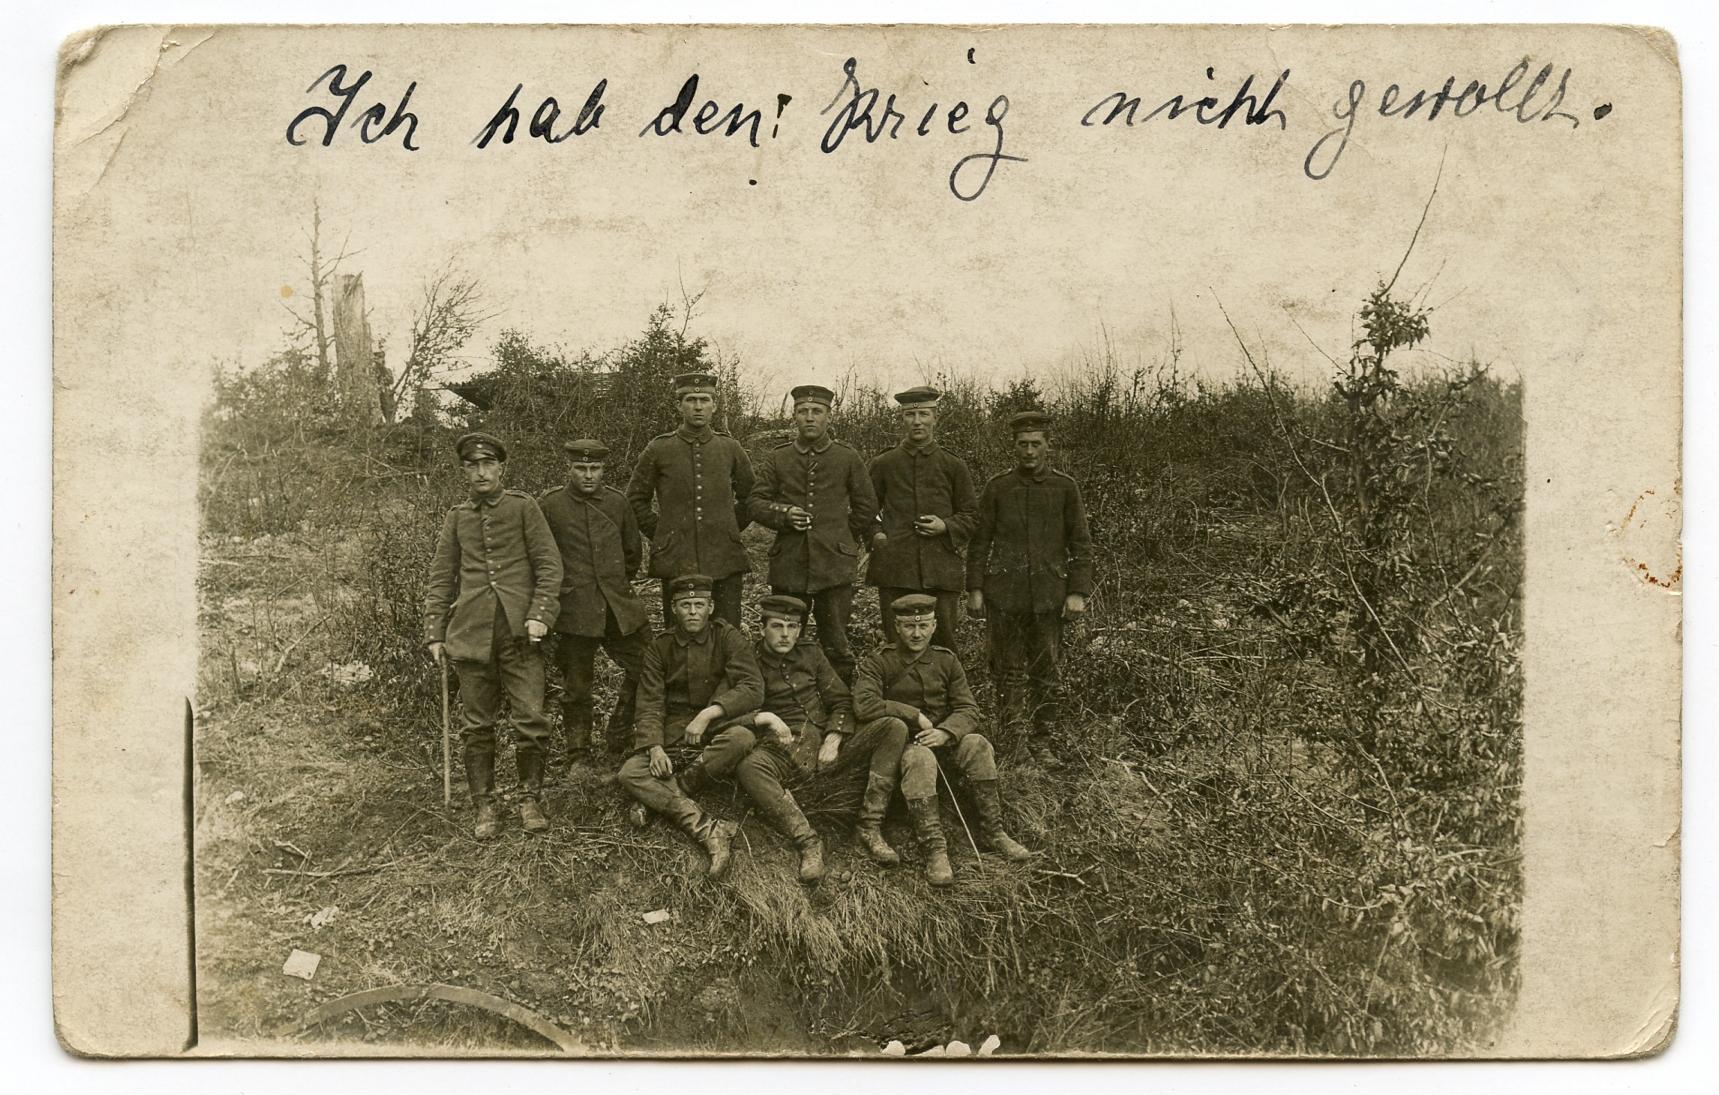 Ich hab den! Krieg nicht gewollt.